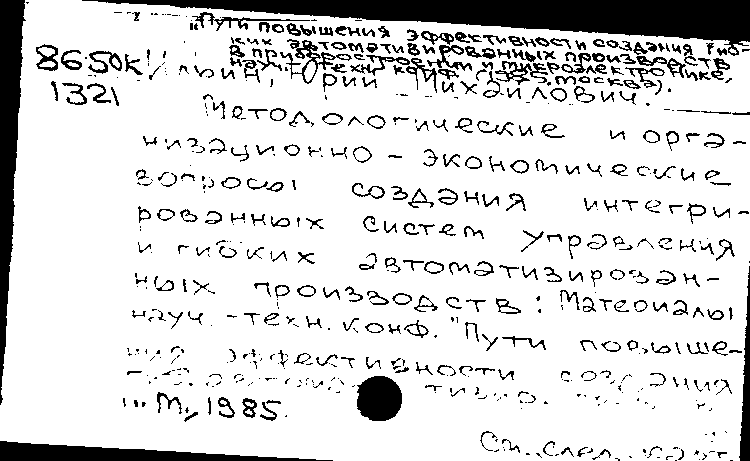 "Пути повышения эффективности создания гиб-
ких автоматизированных производств
в приборостроении и микроэлектронике,
науч.-техн. конф. (1985, Москва).
8650к
1321
Ильин, Юрий Михайлович.
Методологические и орга-
низационно-экономические
вопросы создания интегри-
рованных систем управления
и гибких автоматизирован-
ных производств: Материалы
науч.-техн. конф. "Пути повыше-
ния эффективности создания
гиб. автоматизир.
... М., 1985.
См. след. карт.